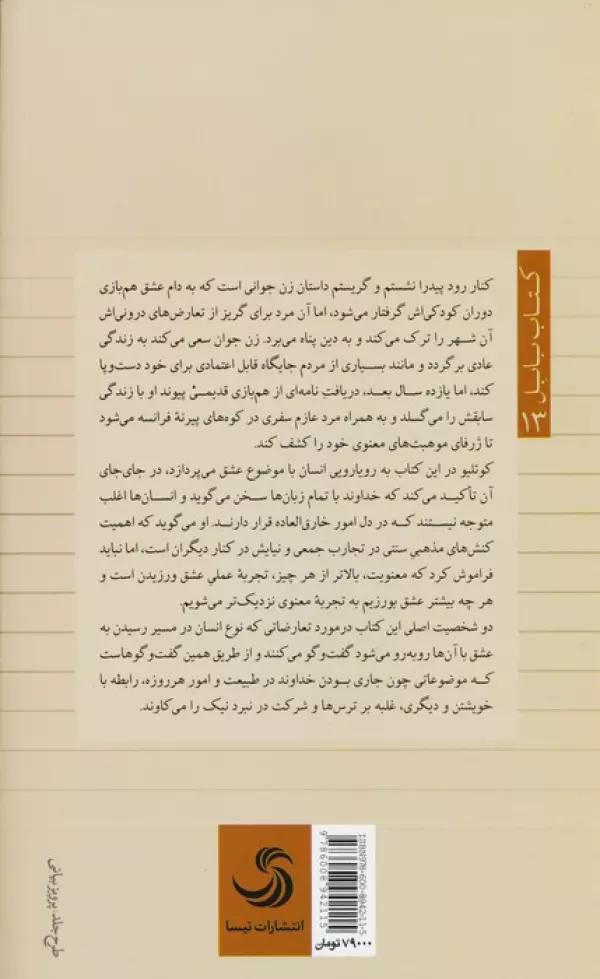 کتاب بابِل
کنار رود پیدرا نشستم و گریستم داستان زن جوانی است که به دام عشق هم‌بازی
دوران کودکی‌اش گرفتار می‌شود، اما آن مرد برای گریز از تعارض‌های درونی‌اش
آن شهر را ترک می‌کند و به دین پناه می‌برد. زن جوان سعی می‌کند به زندگی
عادی برگردد و مانند بسیاری از مردم جایگاه قابل اعتمادی برای خود دست‌وپا
کند، اما یازده سال بعد، دریافتِ نامه‌ای از هم‌بازی قدیمیْ پیوند او با زندگی
سابقش را می‌گسلد و به همراه مرد عازم سفری در کوه‌های پیرنهٔ فرانسه می‌شود
تا ژرفای موهبت‌های معنوی خود را کشف کند.
کوئلیو در این کتاب به رویارویی انسان با موضوع عشق می‌پردازد، در جای‌جای
آن تأکید می‌کند که خداوند با تمام زبان‌ها سخن می‌گوید و انسان‌ها اغلب
متوجه نیستند که در دل امور خارق‌العاده قرار دارند. او می‌گوید که اهمیت
کنش‌های مذهبیِ سنتی در تجارب جمعی و نیایش در کنار دیگران است، اما نباید
فراموش کرد که معنویت، بالاتر از هر چیز، تجربهٔ عملیِ عشق ورزیدن است و
هر چه بیشتر عشق بورزیم به تجربهٔ معنوی نزدیک‌تر می‌شویم.
دو شخصیت اصلی این کتاب درمورد تعارضاتی که نوع انسان در مسیر رسیدن به
عشق با آن‌ها روبه‌رو می‌شود گفت‌وگو می‌کنند و از طریق همین گفت‌وگوهاست
که موضوعاتی چون جاری بودن خداوند در طبیعت و امور هرروزه، رابطه با
خویشتن و دیگری، غلبه بر ترس‌ها و شرکت در نبرد نیک را می‌کاوند.
انتشارات تیسا
ISBN978-600-8942-11-5
9786008942115
۷۹۰۰۰ تومان
طرح جلد: پرویز بیانی